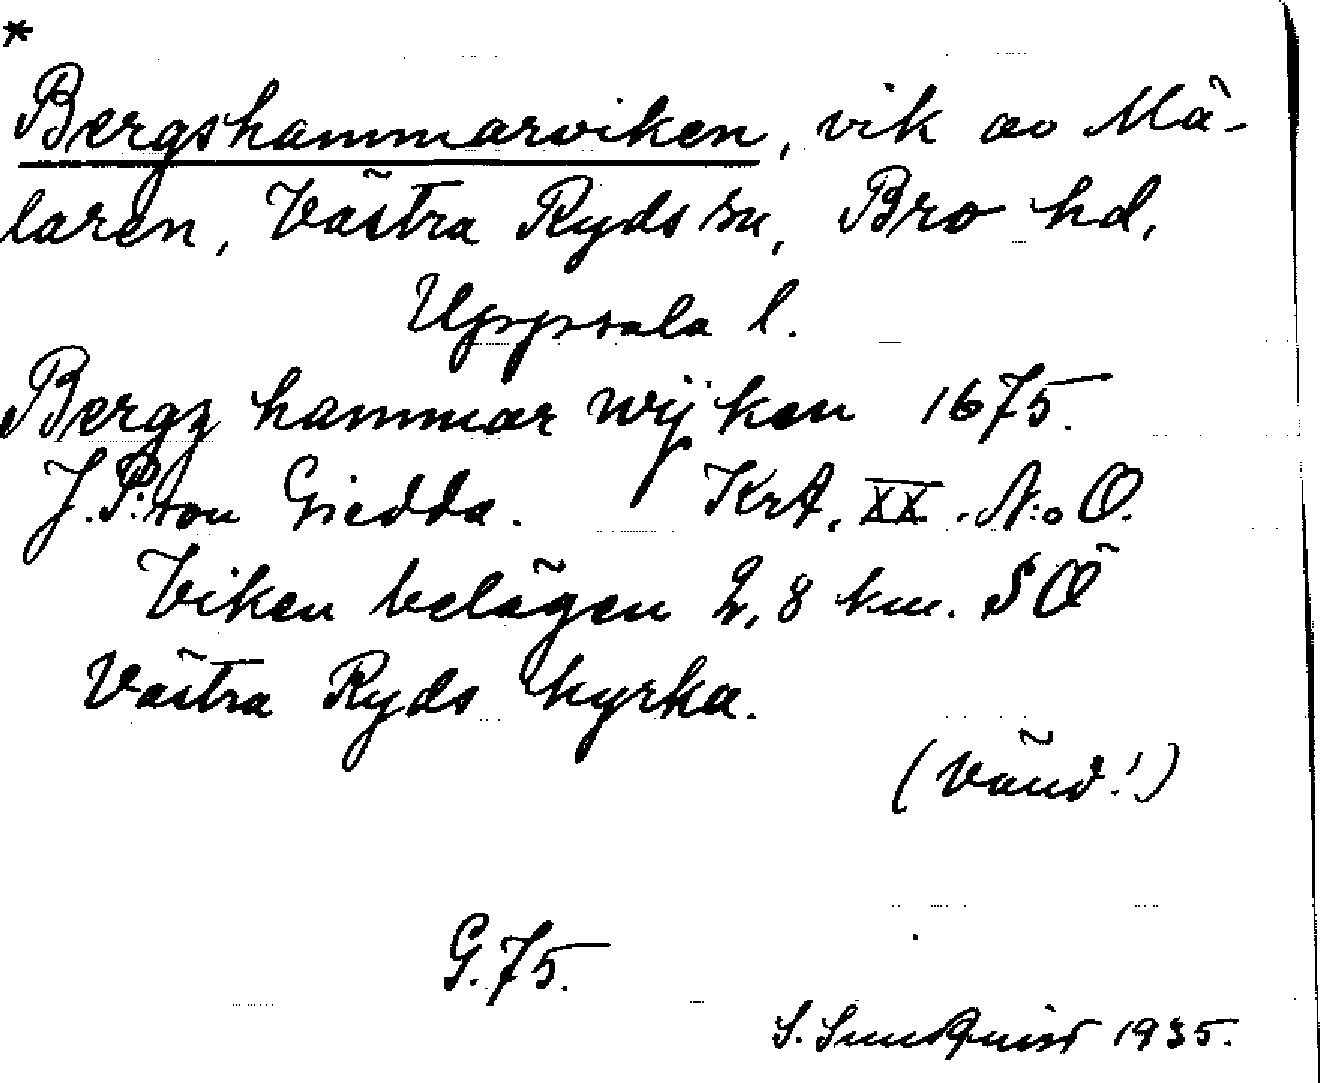 *
Bergshammarviken, vik av Mä-
laren, Västra Ryds sn, Bro hd,
Uppsala l.
Bergz hammar wijken 1675.
J. P:son Giedda. Krt. XX. N:o O.
Viken belägen 2,8 km. SÖ
Västra Ryds kyrka.
(Vänd!)
G. 75.
S. Sundquist 1935.